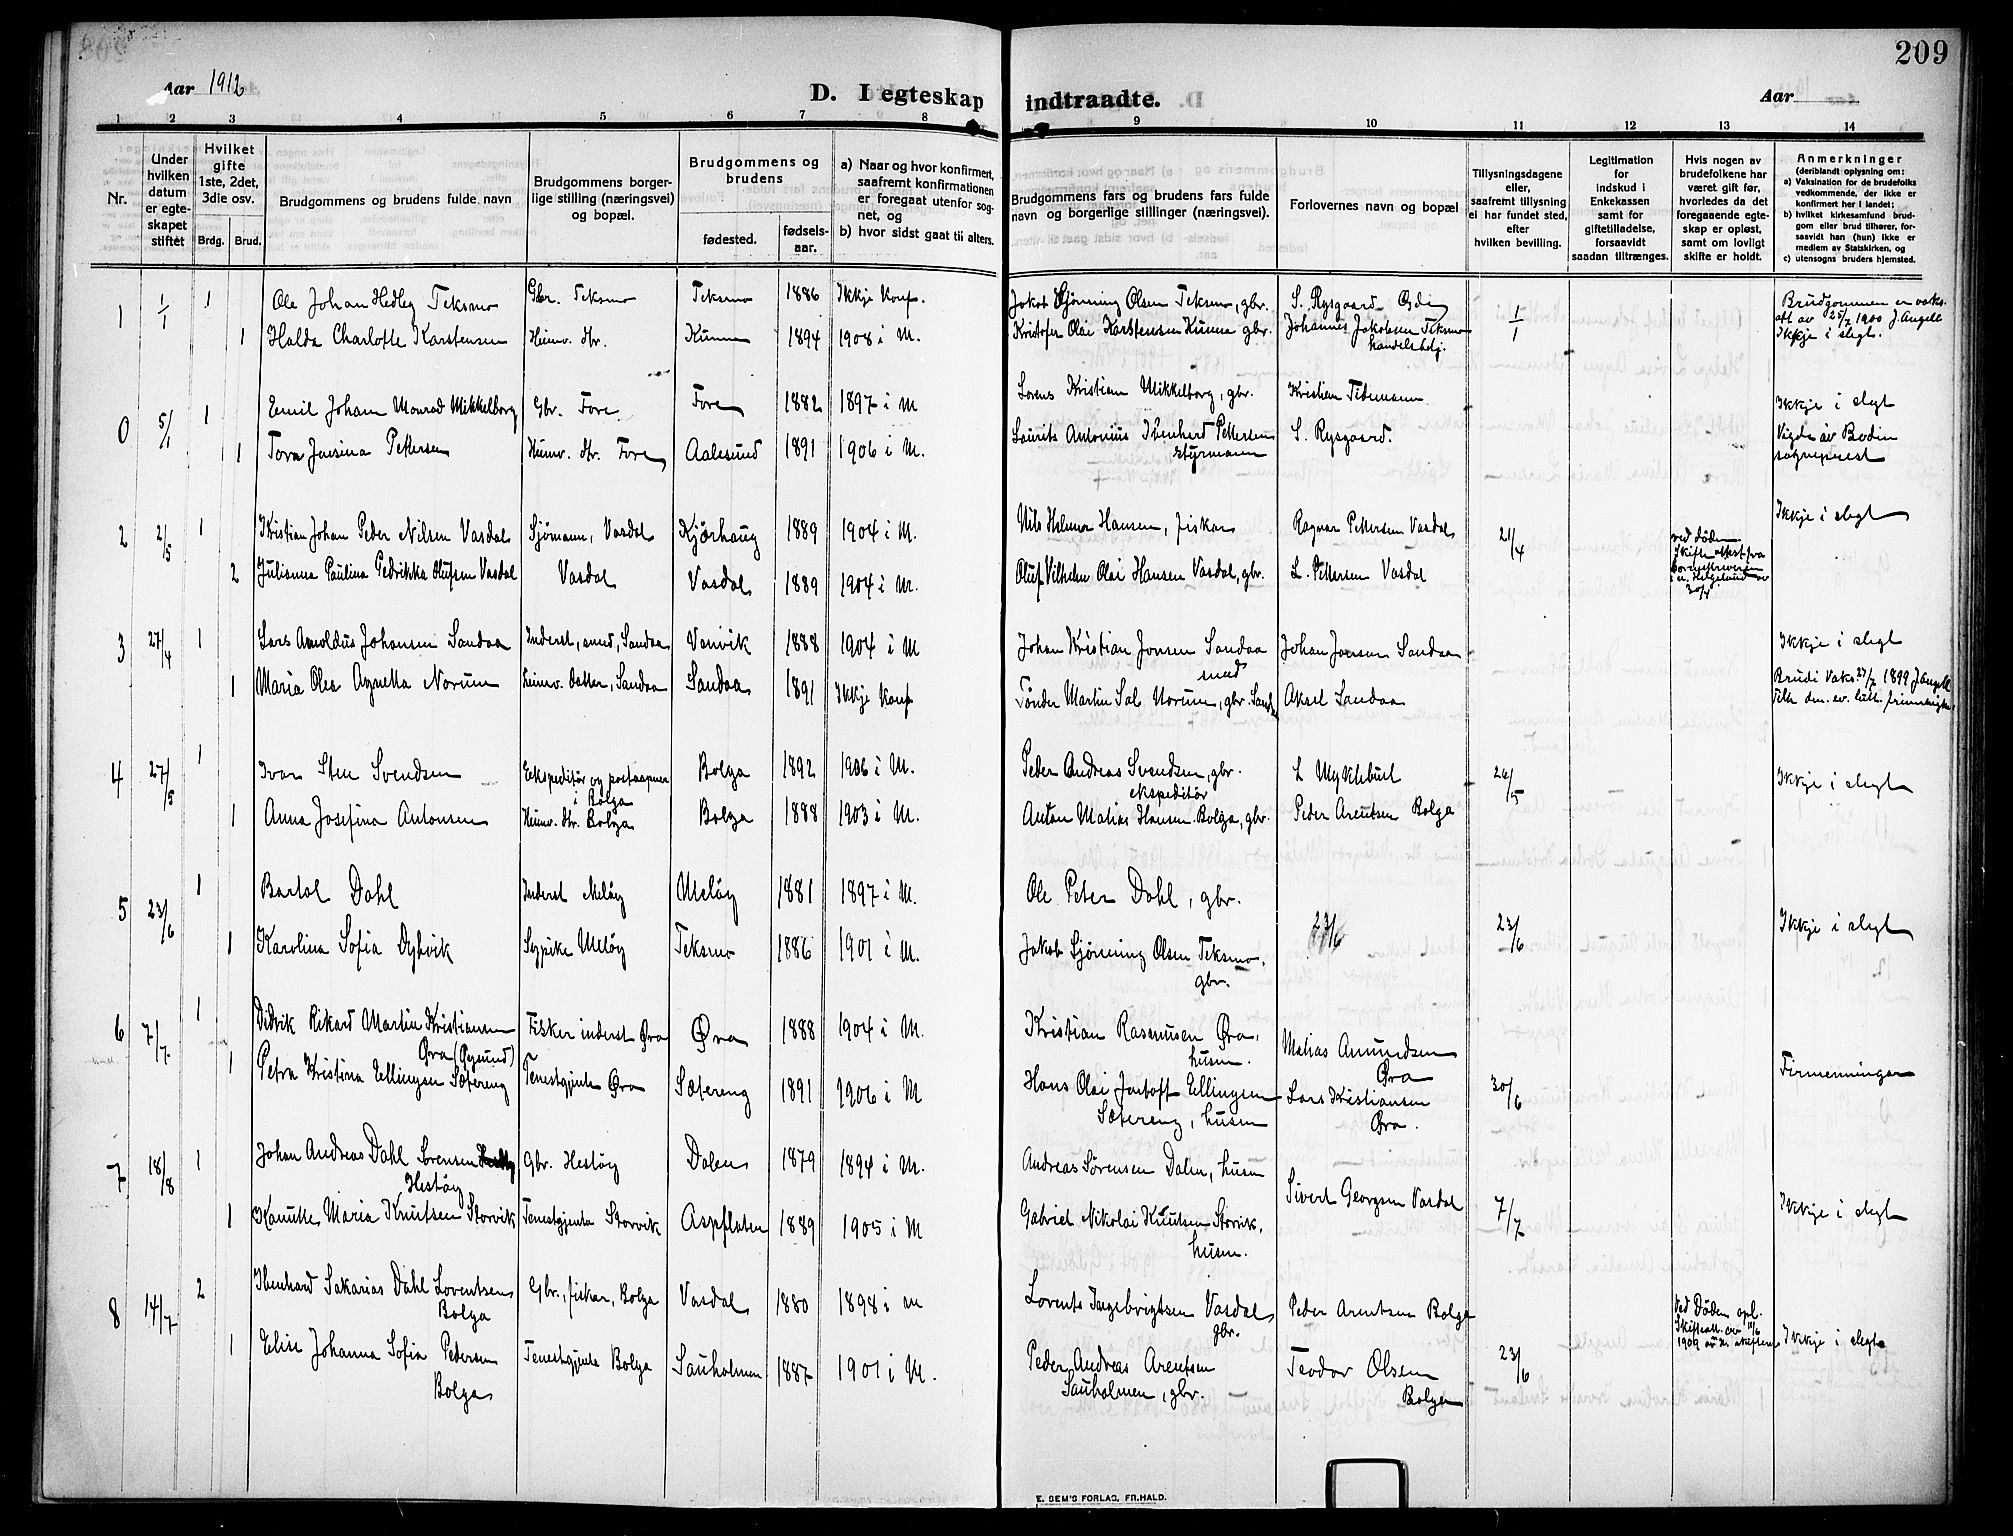 209
Aar 1912
D. I egteskap indtraadte.
Aar
1 2 3 4 5 6 7 8 9 10 11 12 13 14
Nr.
Under hvilken datum er egteskapet stiftet
Hvilket gifte 1ste, 2det, 3die osv.
Brdg. Brud.
Brudgommens og brudens fulde navn
Brudgommens borgerlige stilling (næringsvei) og bopæl.
Brudgommens og brudens
fødested. fødselsaar.
a) Naar og hvor konfirmert, saafremt konfirmationen er foregaat utenfor sognet, og
b) hvor sidst gaat til alters.
Brudgommens fars og brudens fars fulde navn og borgerlige stillinger (næringsvei).
Forlovernes navn og bopæl
Tillysningsdagene eller, saafremt tillysning ei har fundet sted, efter hvilken bevilling.
Legitimation for indskud i Enkekassen samt for giftetilladelse, forsaavidt saadan tiltrænges.
Hvis nogen av brudefolkene har været gift før, hvorledes da det foregaaende egteskap er opløst, samt om lovligt skifte er holdt.
Anmerkninger (deriblandt oplysning om:
a) Vaksination for de brudefolks vedkommende, der ikke er konfirmert her i landet;
b) hvilket kirkesamfund brudgom eller brud tilhører, forsaavidt han (hun) ikke er medlem av Statskirken, og
c) utensogns bruders hjemsted.
1 1/1 1 Ole Johan Hedley Teksmo Gbr. Teksmo Teksmo 1886 Ikkje Konf. Jakob Hjønning Olsen Teksmo, gbr. S. Rysgaard 1/1 Brudgommen er vaks. att av 25/7 1900 J Angell
1 Halda Charlotte Karstensen Heimv. dtr. Kunna 1894 1908 i M. Kristofer Olai Karstensen Kunna gbr. Johannes Jakobsen Teksmo handelsbetj. Ikkje i slegt.
0 5/1 1 Emil Johan Monrad Mikkelborg Gbr. Fore Fore 1882 1897 i M Lorens Kristian Mikkelborg, gbr. Kristian Tidemann Ikkje i slegt
1 Tora Jensina Pettersen Heimv. dtr. Fore Aalesund 1891 1906 i M. Laurits Antonius Ibenhard Pettersen styrmann S. Rysgaard. Vigde av Bodin sogneprest
2 2/5 1 Kristian Johan Peder Nilsen Vasdal Sjømann, Vasdal Kjørhaug 1889 1904 i M. Nils Helmer Hansen, fiskar Ragnar Pettersen Vasdal 21/4 ved døden. Skifteattest fra sorenskriveren i n. Helgeland av 30/4 Ikkje i slegt
2 Julianna Paulina Fredrikka Olufsen Vasdal Vasdal Vasdal 1889 1904 i M. Oluf Vilhelm Olai Hansen Vasdal, gbr. L. Pettersen Vasdal
3 27/4 1 Lars Arnoldus Johansen Sandaa Inderst, smed, Sandaa Vasvik 1888 1904 i M Johan Kristian Jonsen Sandaa smed Johan Jonsen Sandaa Ikkje i slegt
1 Maria Olea Agnetta Norum heimv. datter, Sandaa Sandaa 1891 Ikkje Konf Tønder Martin Sal. Norum, gbr. Sandaa Aksel Sandaa Brudi Vaks 27/7 1899 J Angell
4 27/5 1 Ivar Sten Svendsen Ekspeditør og postaapner i Bolga Bolga 1892 1906 i M. Peder Andreas Svendsen, gbr. ekspeditør L Myklebust 26/5 Ikkje i slegt
1 Anna Josefina Antonsen Heimv. dtr. Bolga Bolga 1888 1903 i M. Anton Matias Hansen Bolga, gbr. Peder Arentsen Bolga
5 23/6 1 Bartol Dahl Inderst Meløy Meløy 1881 1897 i M. Ole Peter Dahl, gbr. 23/6 23/6 Ikkje i slegt
1 Karolina Sofia Dybvik Sypike Meløy Teksmo 1886 1901 i M. Jakob Hjønning Olsen Teksmo, gbr.
6 7/7 1 Didvik Rikard Martin Kristiansen Øra (Øysund) Fisker inderst Øra Øra 1888 1904 i M. Kristian Rasmussen Øra, husm. Matias Amundsen Øra 30/6 Firmenningar
1 Petra Kristina Ellingsen Sætereng Tenestgjenta Øra Sætereng 1891 1906 i M Hans Olai Jentoft Ellingsen Sætereng, husm Lars Kristiansen Øra.
7 18/8 1 Johan Andreas Dahl Sørensen Hestøy Gbr. Hestøy Dalen 1879 1894 i M. Andreas Sørensen Dalen, husm Sivert Georgsen Vasdal 7/7 Ikkje i slegt
1 Kanutte Maria Knutsen Storvik Tenestgjenta Storvik Aspfloten 1889 1905 i M Gabriel Nikolai Knutsen Storvik, husm.
8 14/7 2 Ibenhard Sakarias Dahl Lorentsen Bolga Gbr., fiskar, Bolga Vasdal 1880 1898 i M Lorents Ingebrigtsen Vasdal, gbr. Peder Arentsen Bolga 23/6 Ved Døden opl. Skifteatt. av 11/6 1909 Ikkje i slegt
1 Elise Johanna Sofia Pedersen Bolga Tenestgjenta Bolga Sauholmen 1887 1901 i M. Peder Andreas Arentsen Sauholmen, gbr. Teodor Olsen Bolga
E. SEM'S FORLAG, FR.HALD.